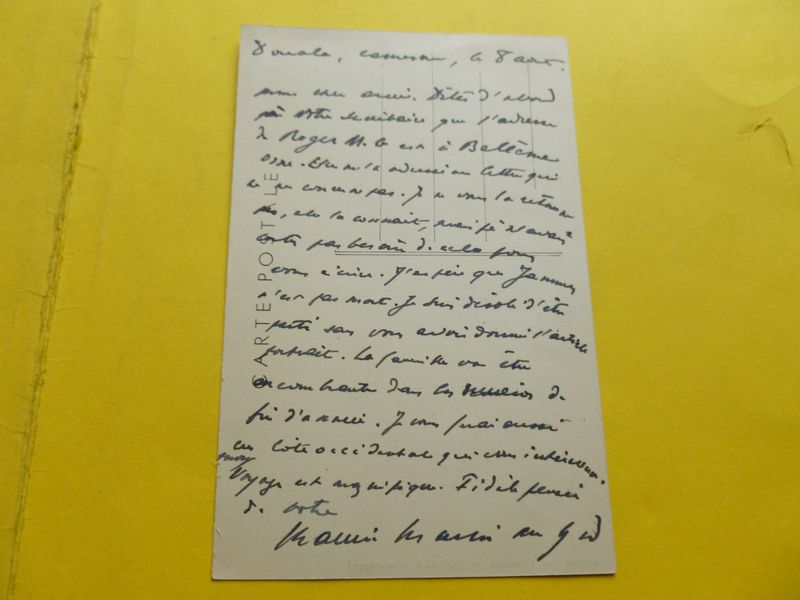 Douala, Cameroun, le 8 août.
mon cher ami. Dites d'abord
à votre secrétaire que l'adresse
de Roger M. d. est à Bellême
Orne. Elle m'a adressé une lettre qui
ne me concerne pas. Je ne vous la retourne
pas, elle la connaît, mais je n'avais
pas besoin de cela pour
vous écrire. J'espère que Jammes
n'est pas mort. Je suis désolé d'être
parti sans vous avoir donné l'article
portrait. La famille va être
encombrante dans les de
fin d'année. Je vous ferai aussi
un Côte occidentale qui vous intéressera.
mon
Voyage est magnifique. Fidèle pensée
de votre
CARTE POSTALE